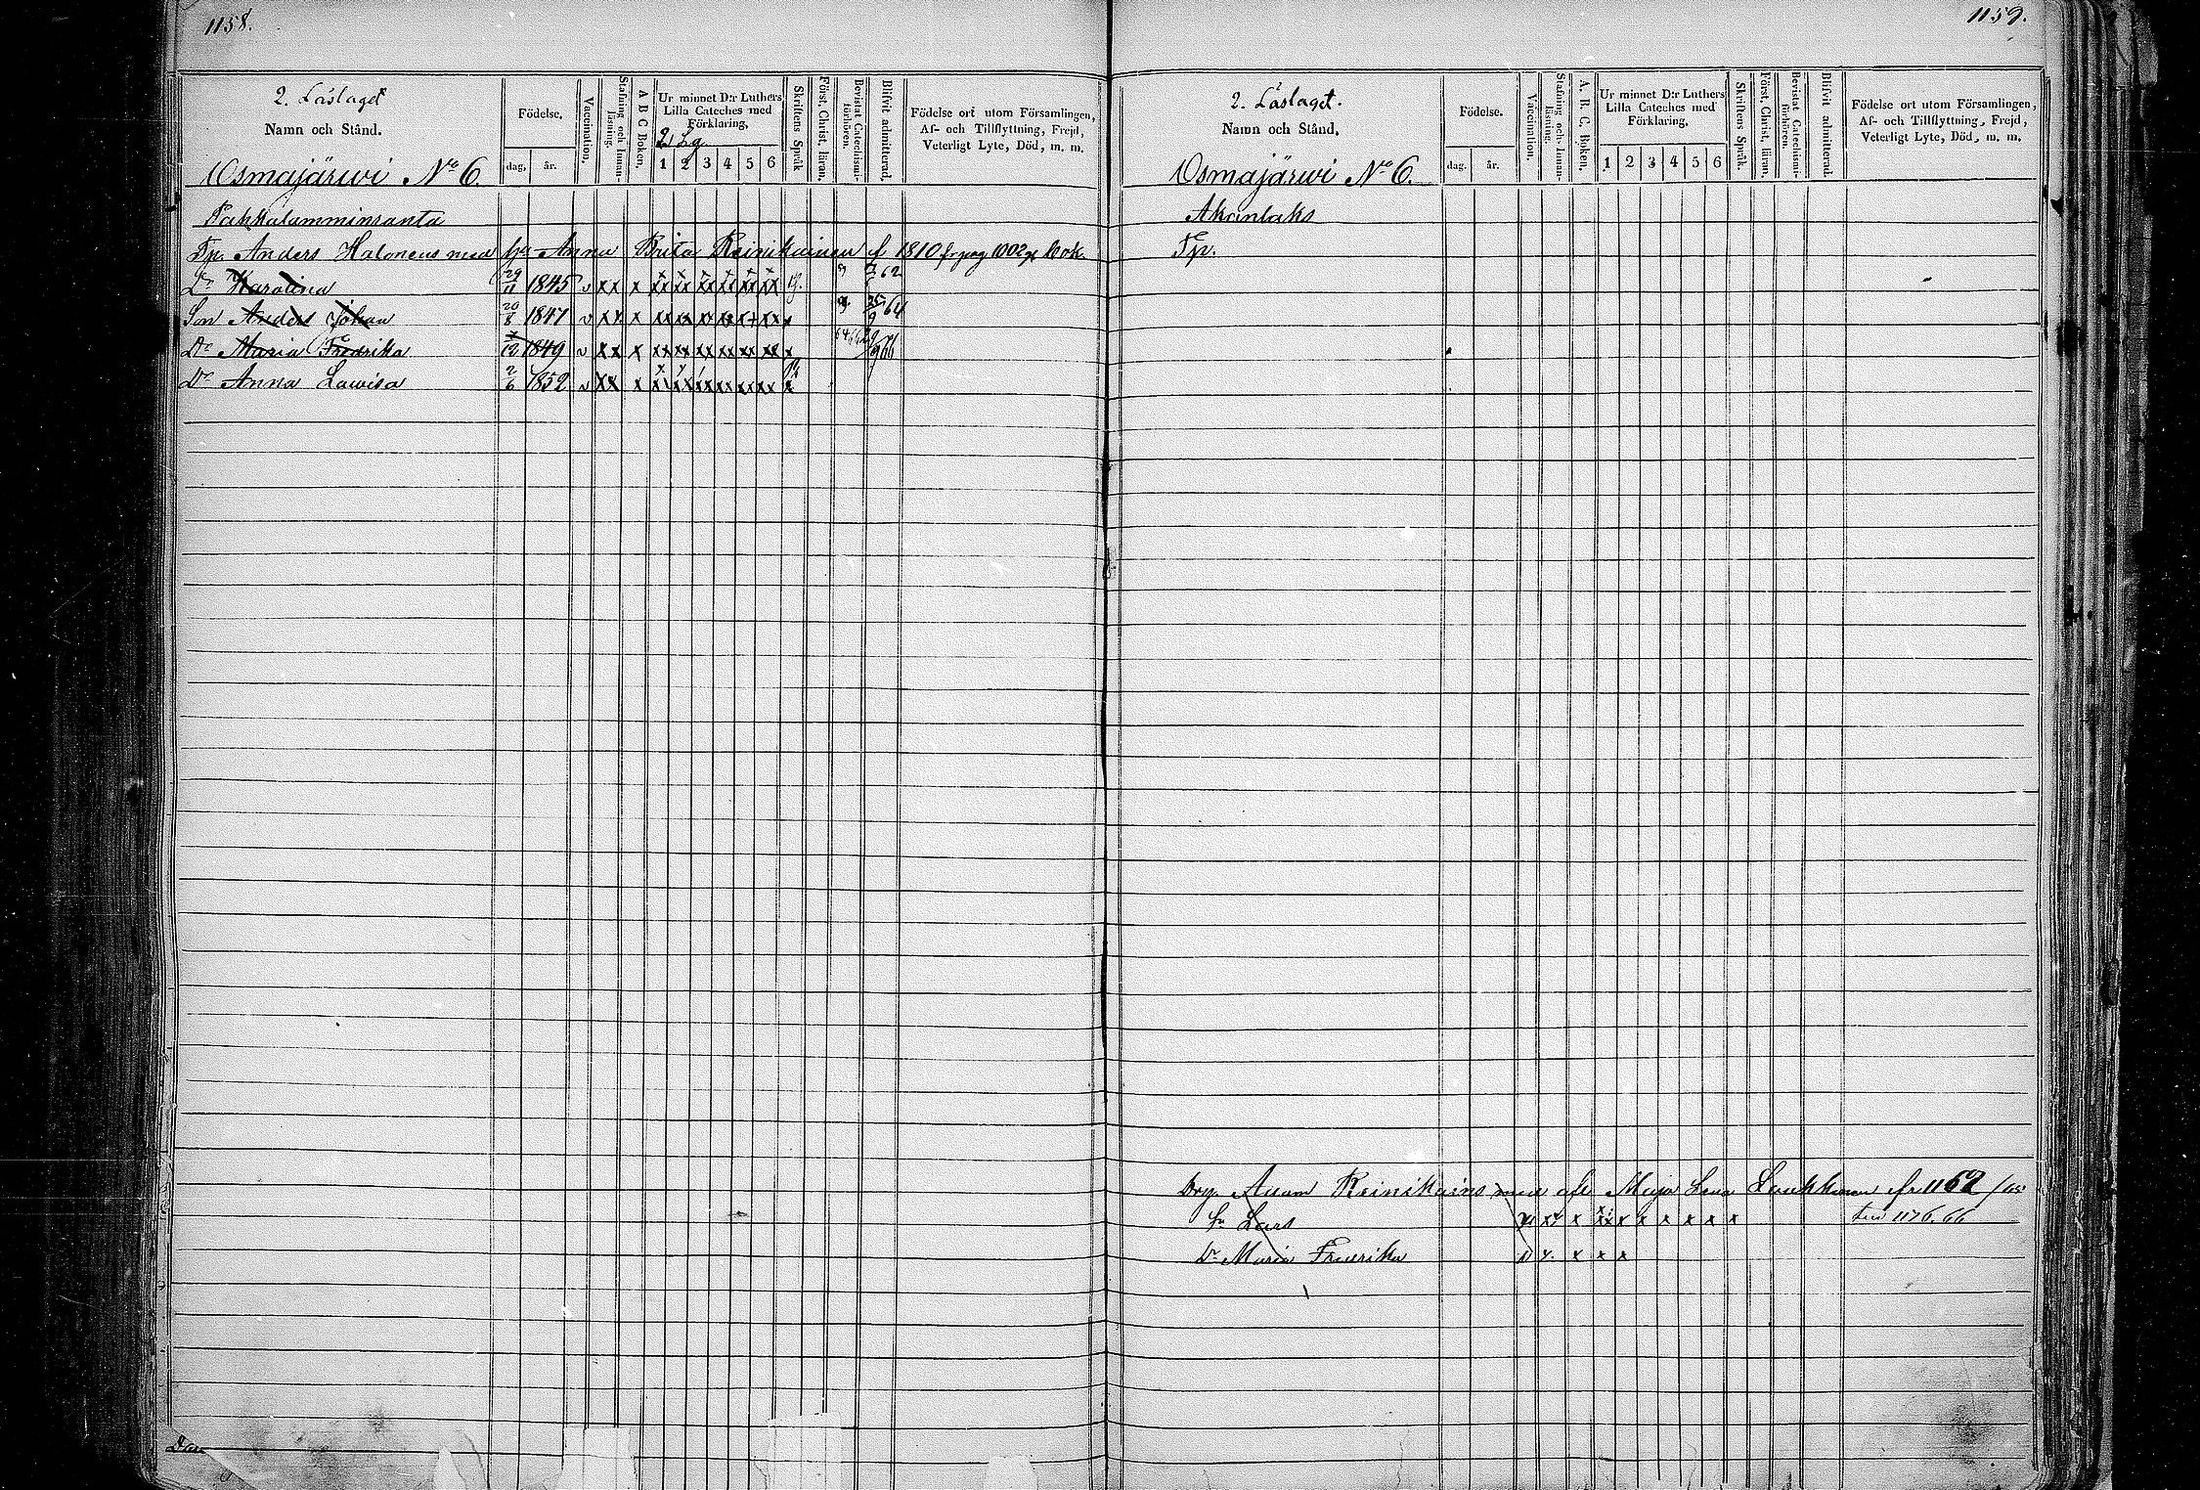 1158.
2. Läslaget
Namn och Stånd.
Födelse.
dag, år.
Vaccination,
Stafning och Innanläsning.
A B C Boken.
Ur minnet D:r Luthers Lilla Cateches med Förklaring,
2 Lg
1 2 3 4 5 6
Skriftens Språk
Först. Christ. läran.
Bevistat Catechismiförhören.
Blifvit admitterad.
Födelse ort utom Församlingen,
Af- och Tillflyttning, Frejd,
Veterligt Lyte, Död, m. m.
Osmajärwi No 6.
Pakkalamminranta
Tp. Anders Halonens med hu Anna Brita Reinikainen f 1810 fr pag 1002 gl bok.
Dr Karolina 29/11 1845 v x x x
Son Anders Johan 20/8 1847 v x x x 64
Dr Maria Fredrika 12 1849 v x x x 66
Dr Anna Lawisa 2/6 1852 v x x x
1159.
2. Läslaget.
Namn och Stånd.
Födelse.
dag. år.
Vaccination.
Stafning och Innanläsning.
A. B. C. Boken.
Ur minnet D:r Luthers Lilla Cateches med Förklaring,
1 2 3 4 5 6
Skriftens Språk.
Först. Christ. läran.
Bevistat Catechismiförhören.
Blifvit admitterad.
Födelse ort utom Församlingen,
Af- och Tillflyttning, Frejd,
Veterligt Lyte, Död, m. m.
Osmajärwi No 6.
Akanlaks
Tp.
Drg. Adam Reinikains med afl Maja Lena Laukkanen fr 1162/65
Sn Lars x x x x x x x x 1176. 66
Dr Maria Fredrika v x. x x x